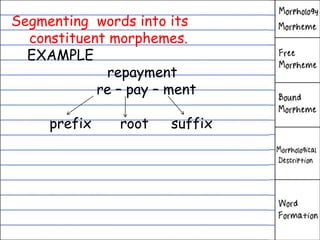 Segmenting words into its
constituent morphemes.
EXAMPLE
repayment
re – pay – ment
prefix root suffix
Morphology
Morpheme
Free
Morpheme
Bound
Morpheme
Morphological
Description
Word
Formation